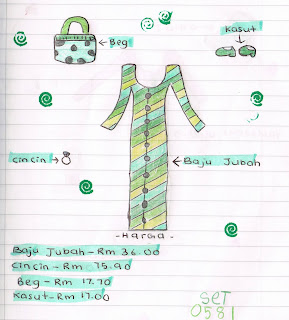 Beg
Kasut
cincin
Baju Jubah
- Harga -
Baju Jubah - Rm 36.00
Cincin - Rm 75.90
Beg - Rm 17.70
Kasut - Rm 17.00
SET
0581